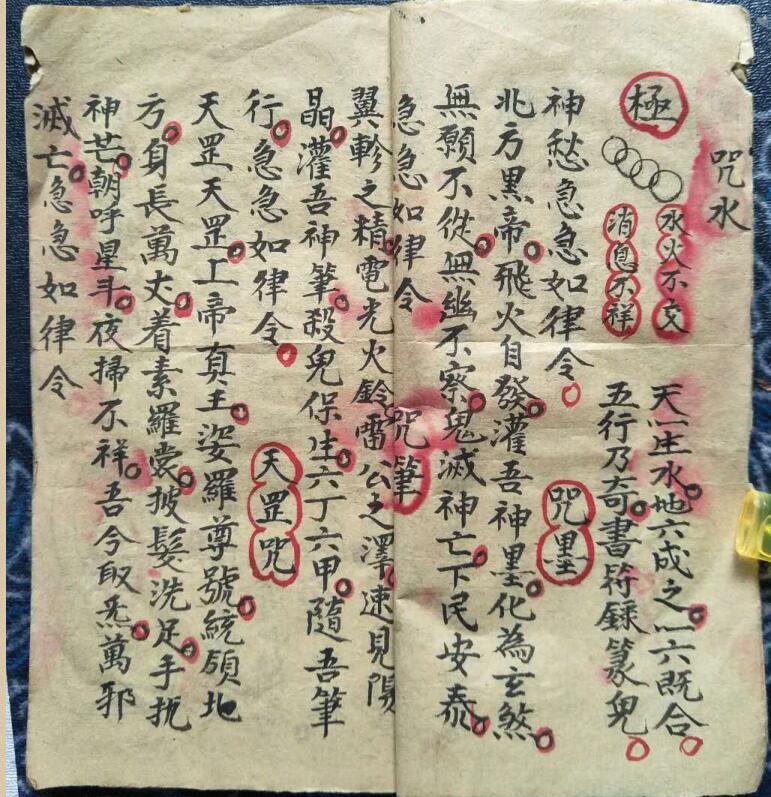 咒水
極
水火不交
消息不祥
天一生水地六成之一六既合
五行乃奇書符錄篆鬼
神愁急急如律令
咒墨
北方黑帝飛火自發灌吾神墨化為玄煞
無願不從無幽不察鬼滅神亡下民安泰
急急如律令
咒筆
翼軫之精電光火鈴雷公之澤速見陽
晶灌吾神筆殺鬼保生六丁六甲隨吾筆
行急急如律令
天罡咒
天罡天罡上帝真主姿羅尊號統領地
方身長萬丈着素羅裳披髮洗足手執
神芒朝呼星斗夜掃不祥吾今取炁萬邪
滅亡急急如律令